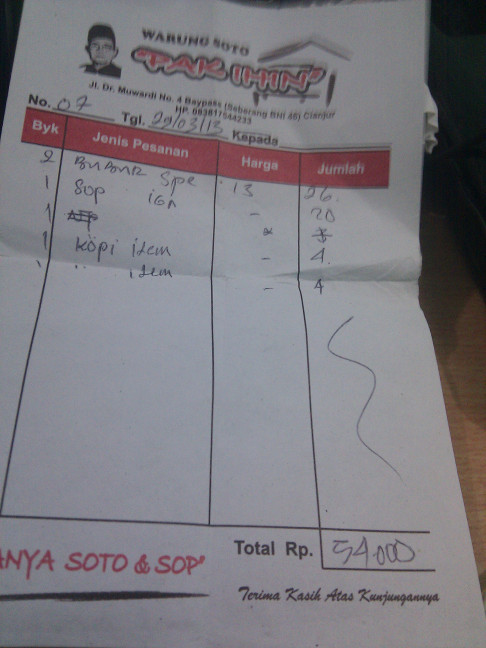 WARUNG SOTO
"PAK IHIN"
Jl. Dr. Muwardi No. 4 Baypass (Seberang BNI 46) Cianjur
HP. 083817544233
No. 07 Tgl. 29/03/13 Kepada
Byk Jenis Pesanan Harga Jumlah
2 BUBUR Spe 13 26.
1 Sop iga - 20
1
1 kopi item - 4.
" " item - 4
Total Rp. 54.000
ANYA SOTO & SOP"
Terima Kasih Atas Kunjungannya